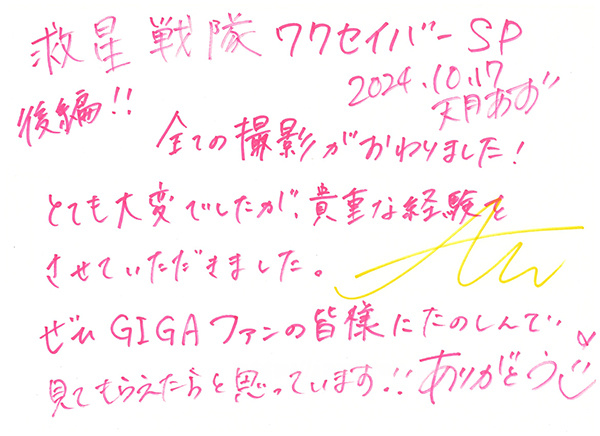 救星戦隊ワクセイバーSP
2024.10.17
天月あず
後編!!
全ての撮影がおわりました!
とても大変でしたが、貴重な経験を
させていただきました。
ぜひGIGAファンの皆様にたのしんで
見てもらえたらと思っています!! ありがとう